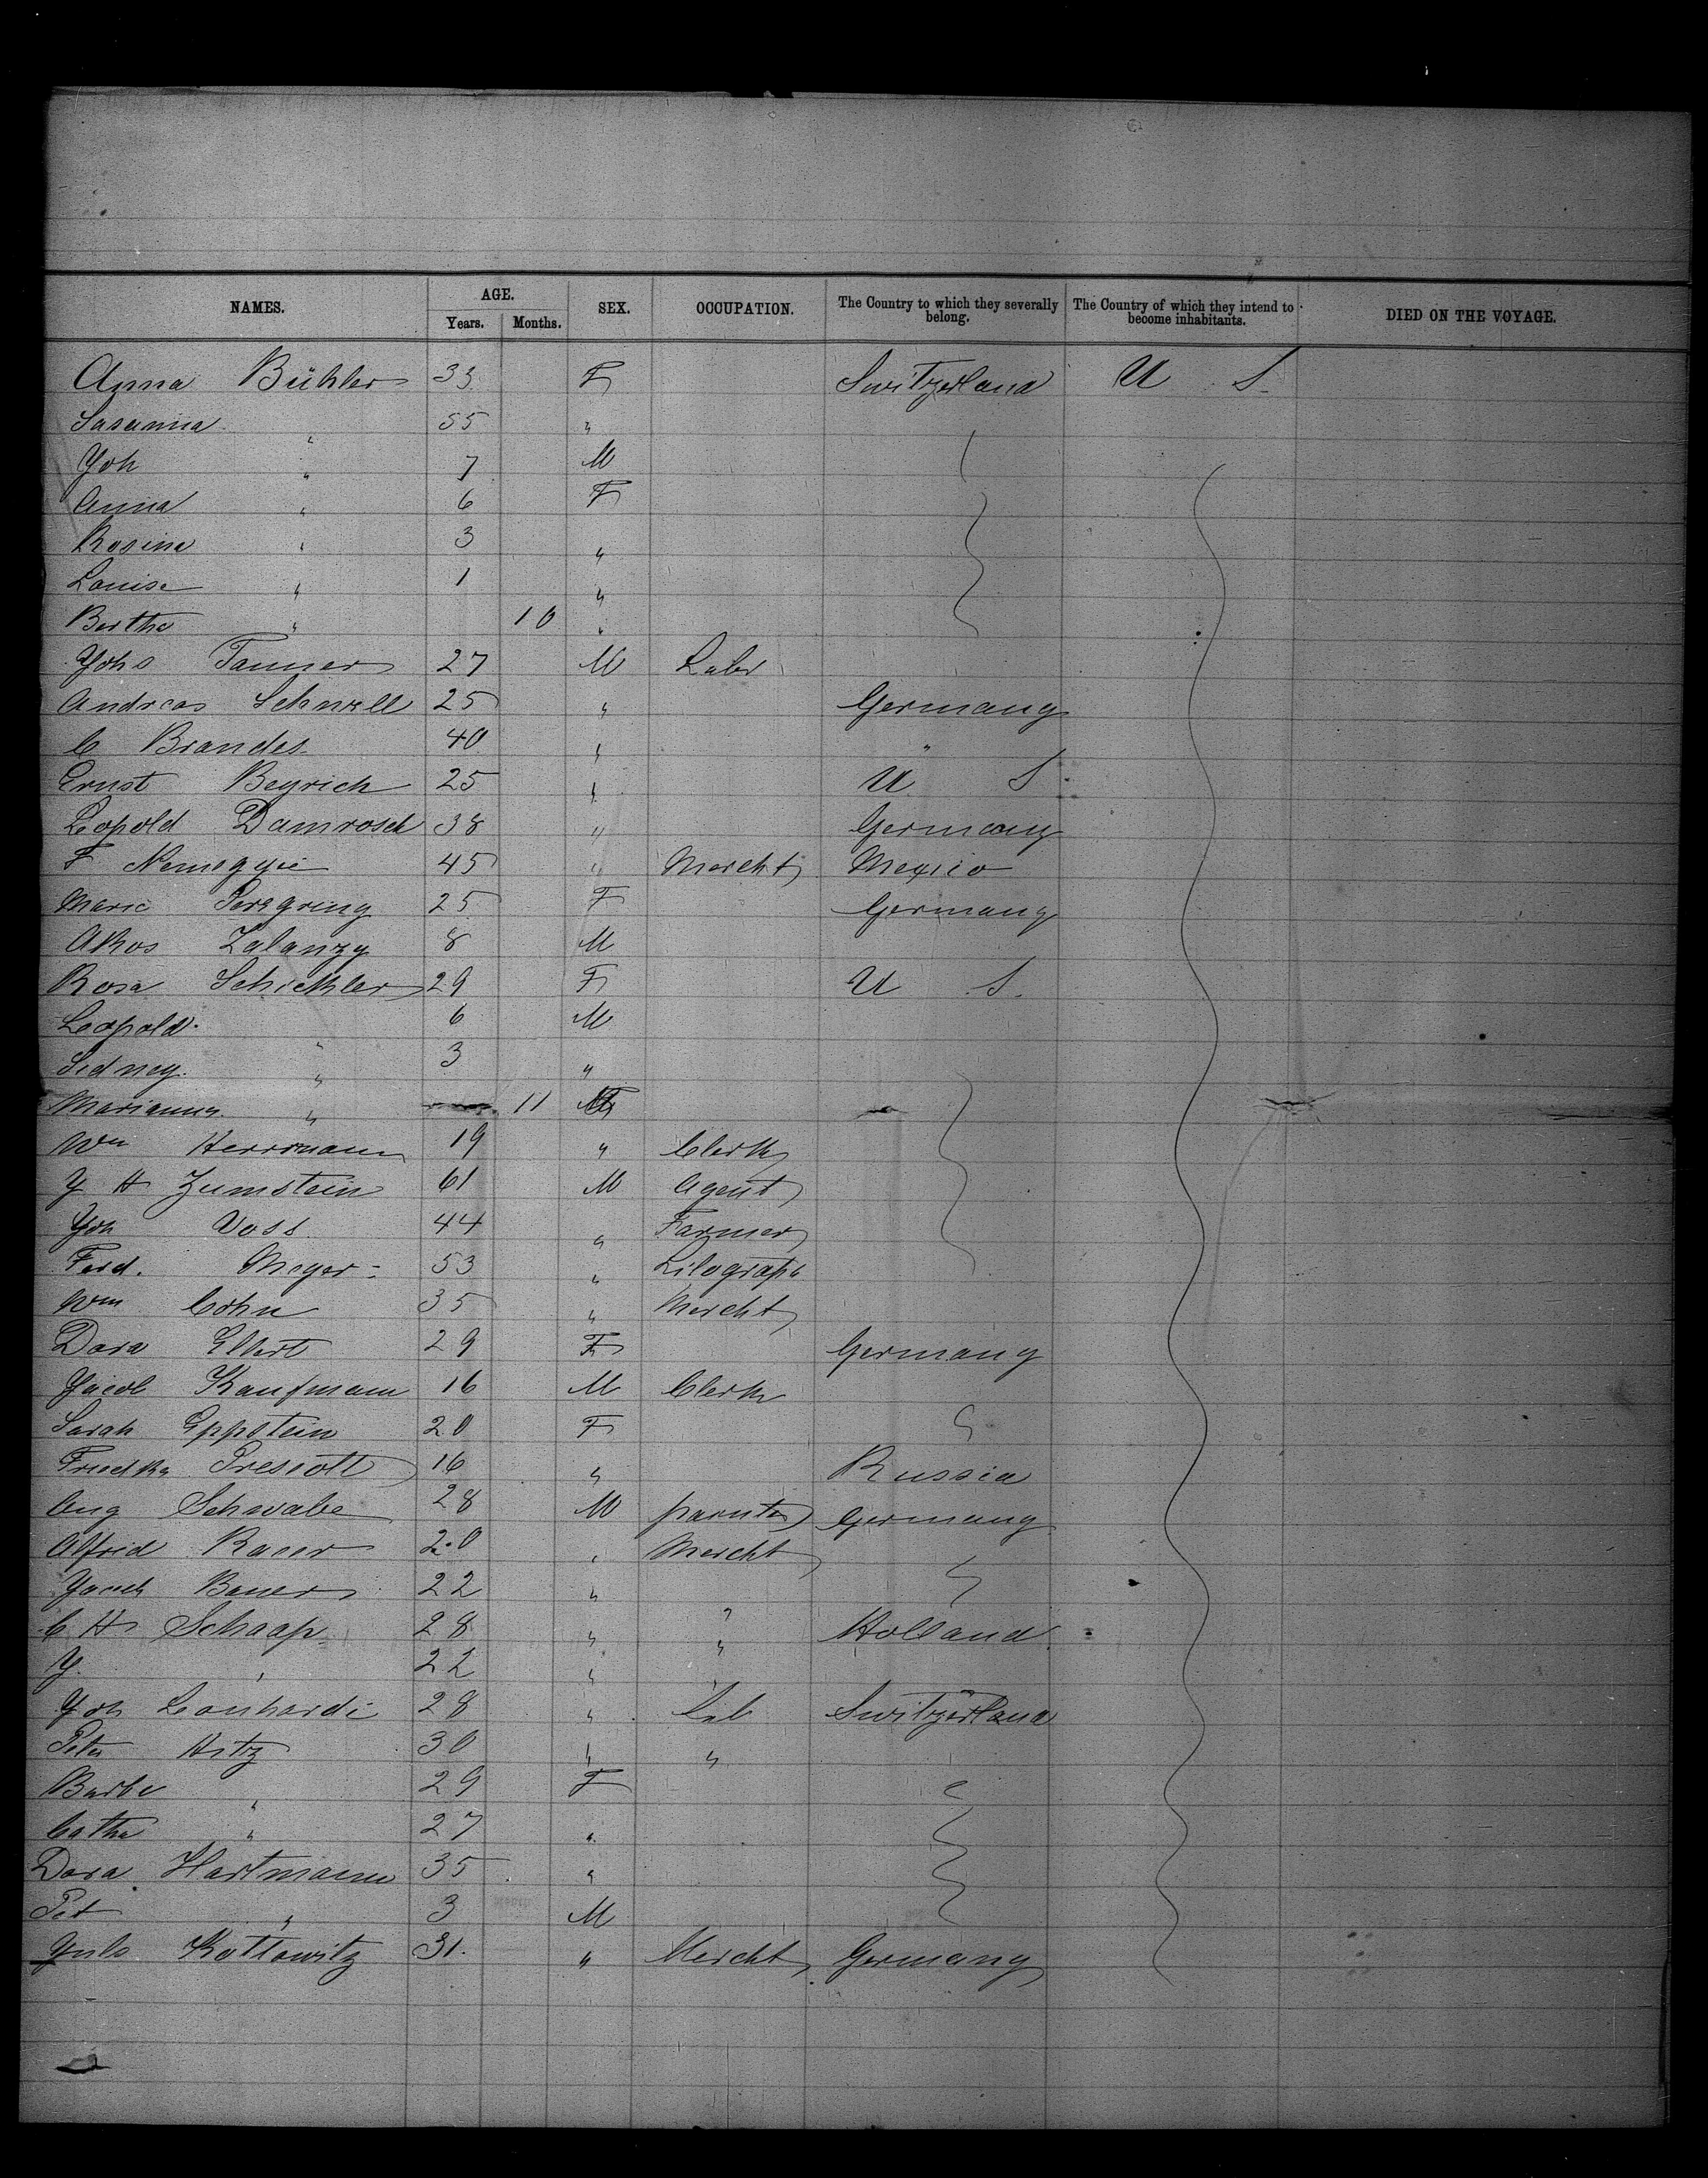 NAMES. AGE. SEX. OCCUPATION. The Country to which they severally belong. The Country of which they intend to become inhabitants. DIED ON THE VOYAGE.
Years. Months.
Anna Bühler 33 F Switzerland U S
Susanna " 55 "
Joh " 7 M
Anna " 6 F
Rosina " 3 "
Louise " 1 "
Bertha " 10 "
Johs Tanner 27 M Labr
Andreas Schnell 25 " Germany
C Brandes 40 " "
Ernst Beyrich 25 " U S
Leopold Damrosch 38 " Germany
F 45 " Mercht Mexico
Marie 25 F Germany
Akos Zalanzy 8 M
Rosa 29 F U S
Leopold " 6 M
Sidney " 3 "
Marianna " 11 F
Wm Herrmann 19 " Clerk
J H Zumstein 61 M Agent
Joh Voss 44 " Farmer
Ferd. Meyer 53 "
Wm Cohn 35 " Mercht
Dora Elbert 29 F Germany
Jacob Kaufmann 16 M Clerk
Sarah Eppstein 20 F
Friedka Prescott 16 " Russia
Aug Schwabe 28 M Germany
Alfred 20 " Mercht
Jacob Bauer 22 " "
C H Schaap 28 " " Holland
J. " 22 " "
Joh Leonhardi 28 " Lab Switzerland
Peter Hitz 30 " "
Barba " 29 F
Catha " 27 "
Dora Hartmann 35 "
Pet " 3 M
Juls Kottowitz 31. " Mercht Germany